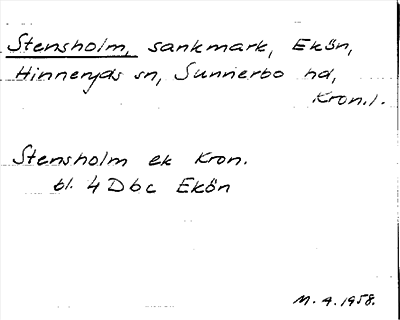 Stensholm, sankmark, Ekön,
Hinneryds sn, Sunnerbo hd,
Kron.l.
Stensholm ek Kron.
bl. 4 D b c Ekön
M. A. 1958.